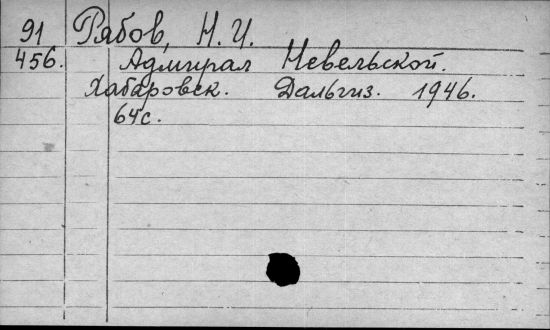 91 Рябов, Н. И.
456. Адмирал Невельской.
Хабаровск. Дальгиз. 1946.
64с.